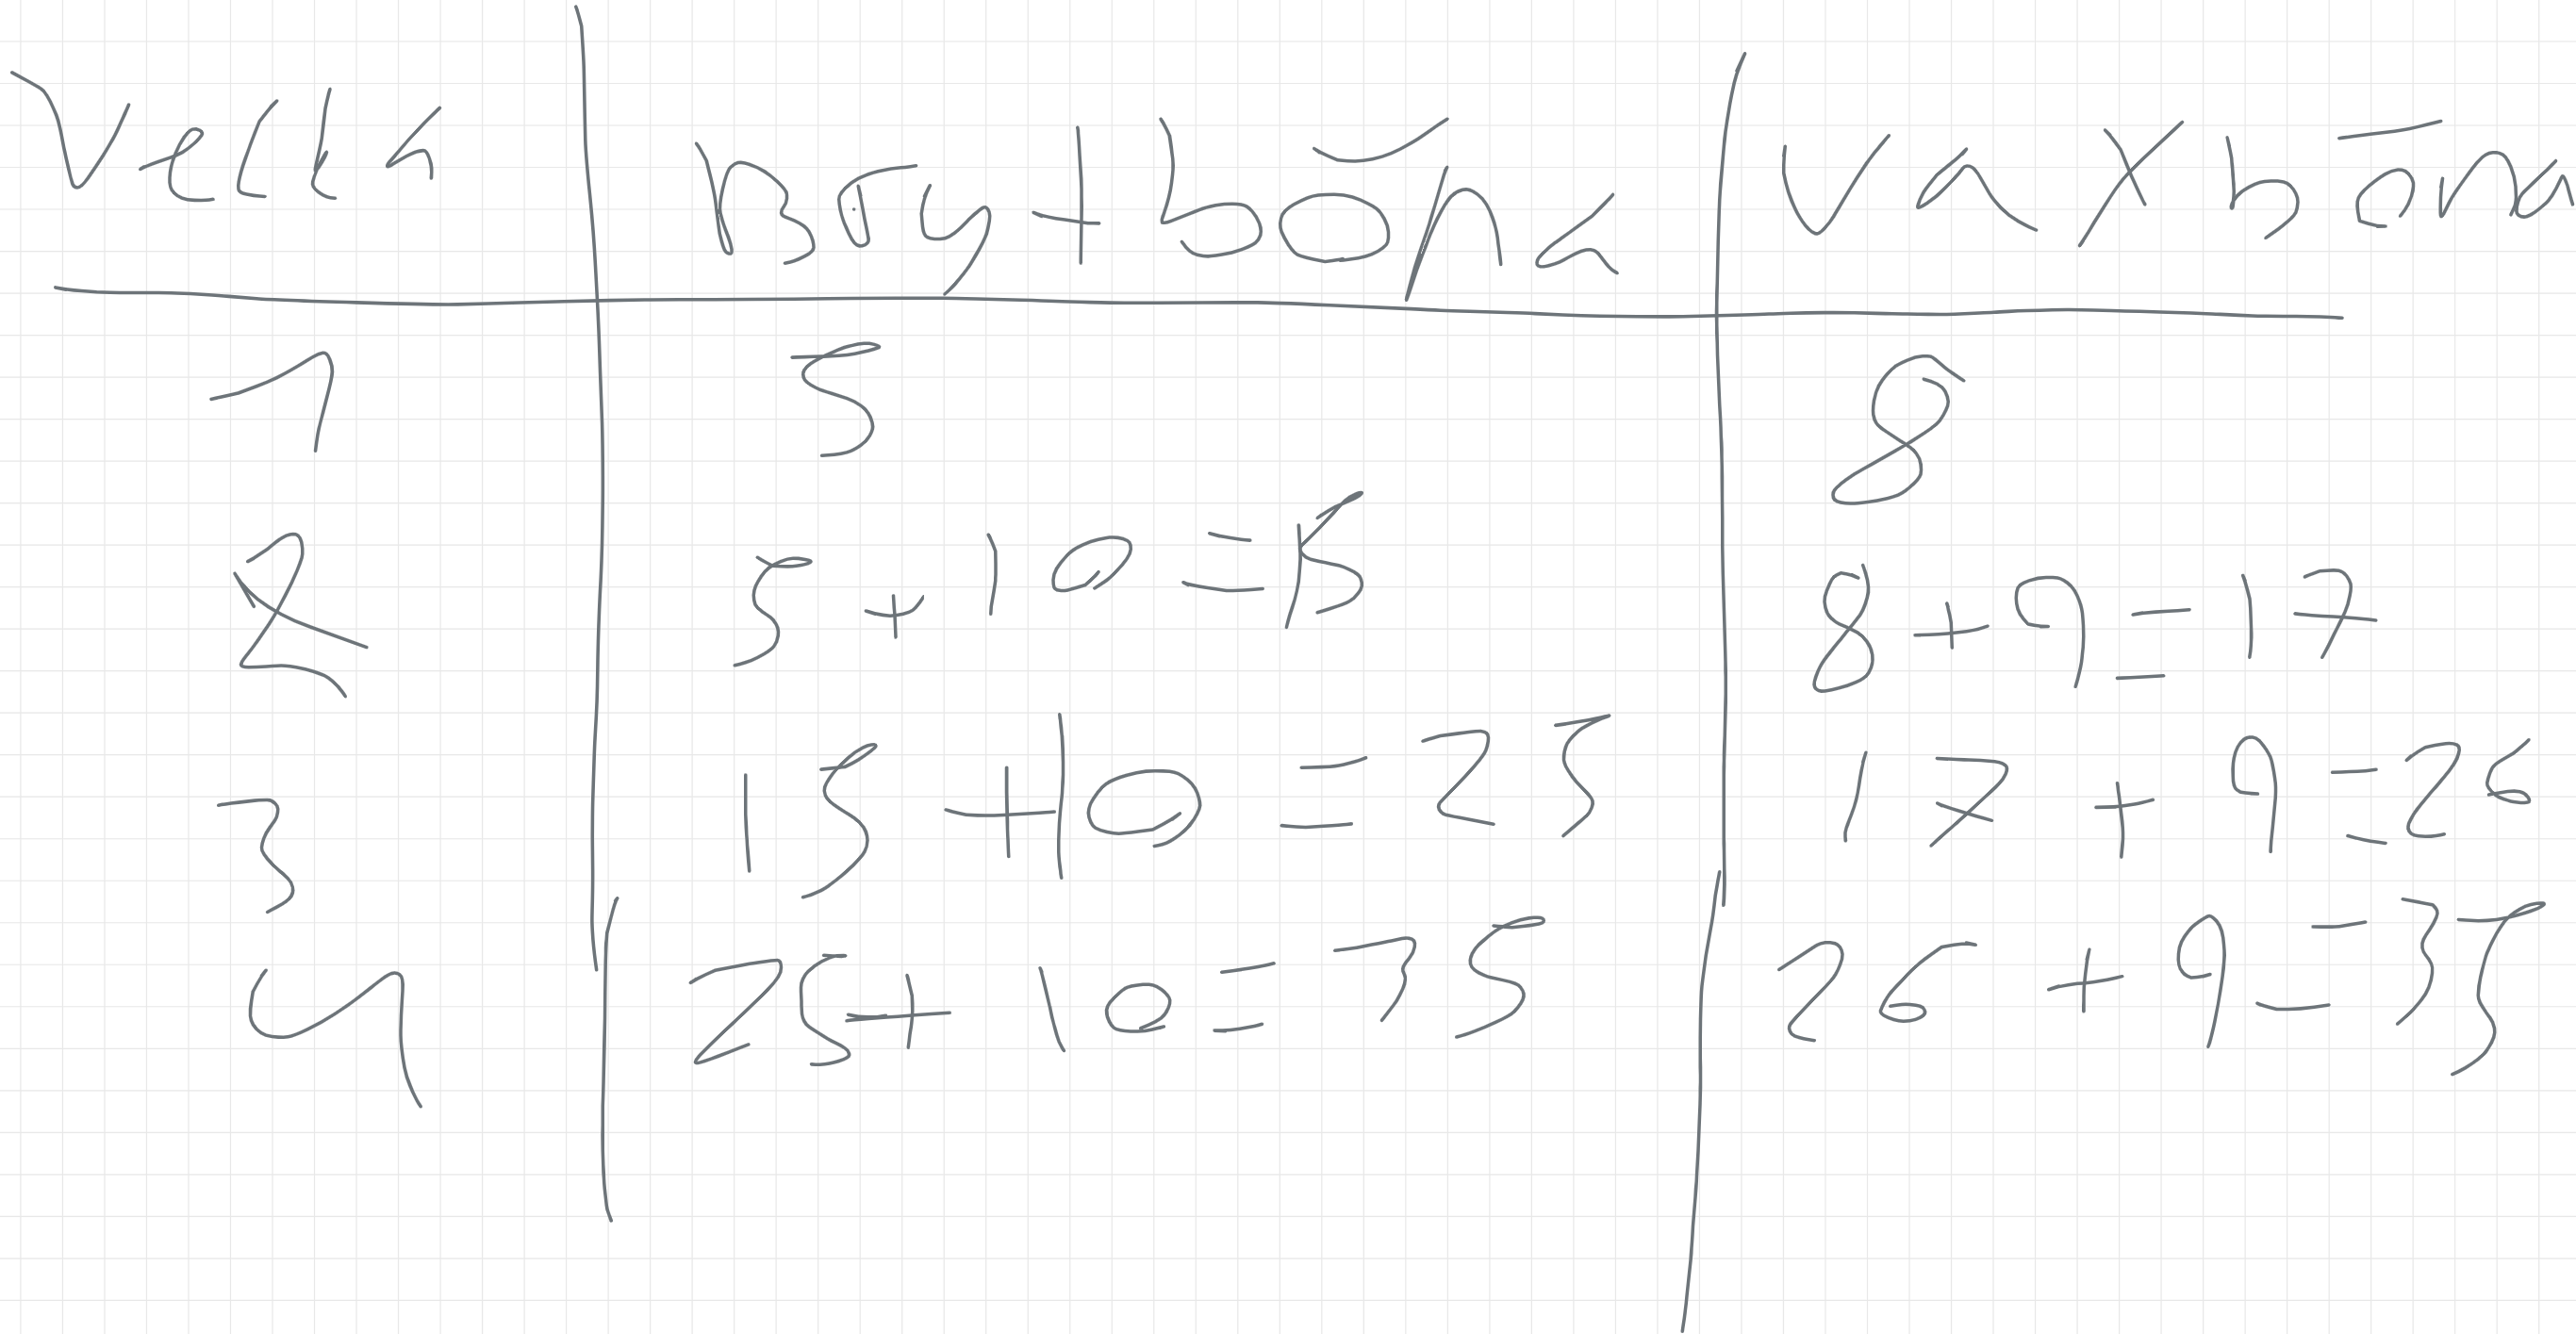 Vecka Bryt böna Vaxböna
1 5 8
2 5 + 10 = 15 8 + 9 = 17
3 15 + 10 = 25 17 + 9 = 26
4 25 + 10 = 35 26 + 9 = 35